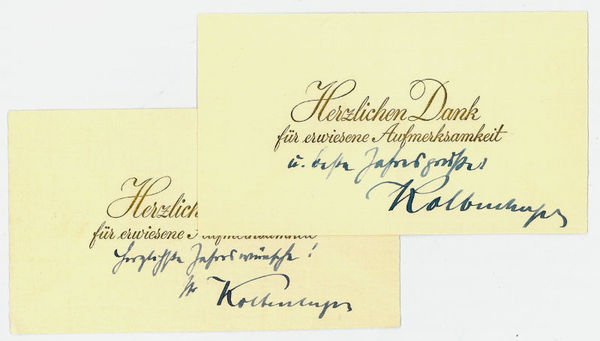 Herzlichen Dank
für erwiesene Aufmerksamkeit
u. beste Jahresgrüße!
Kolbenheyer
Herzlich
für erwiesene Aufmerksamkeit
herzlichste Jahreswünsche!
Ihr Kolbenheyer